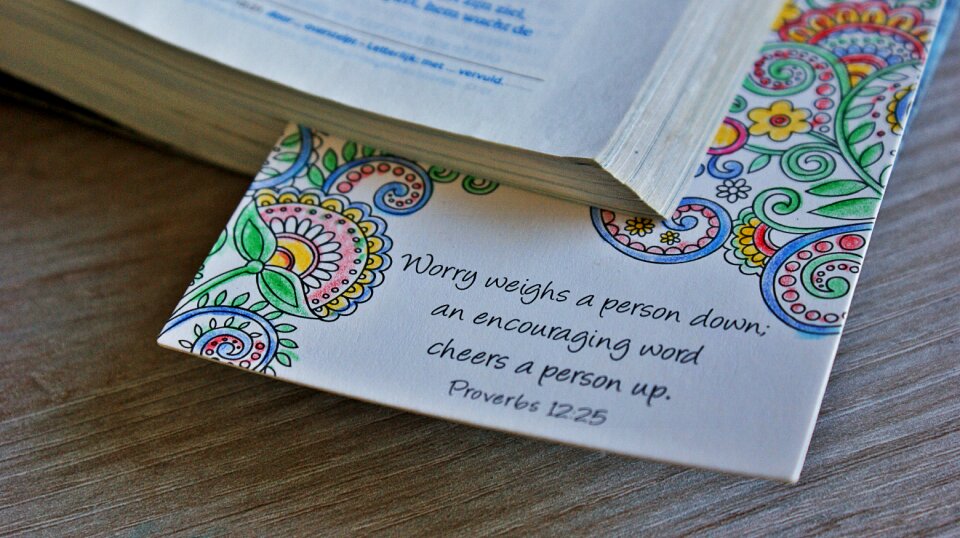 zijn ziel,
hem wacht de
overszijn – Letterlijk: met ... vervuld.
Worry weighs a person down;
an encouraging word
cheers a person up.
Proverbs 12:25